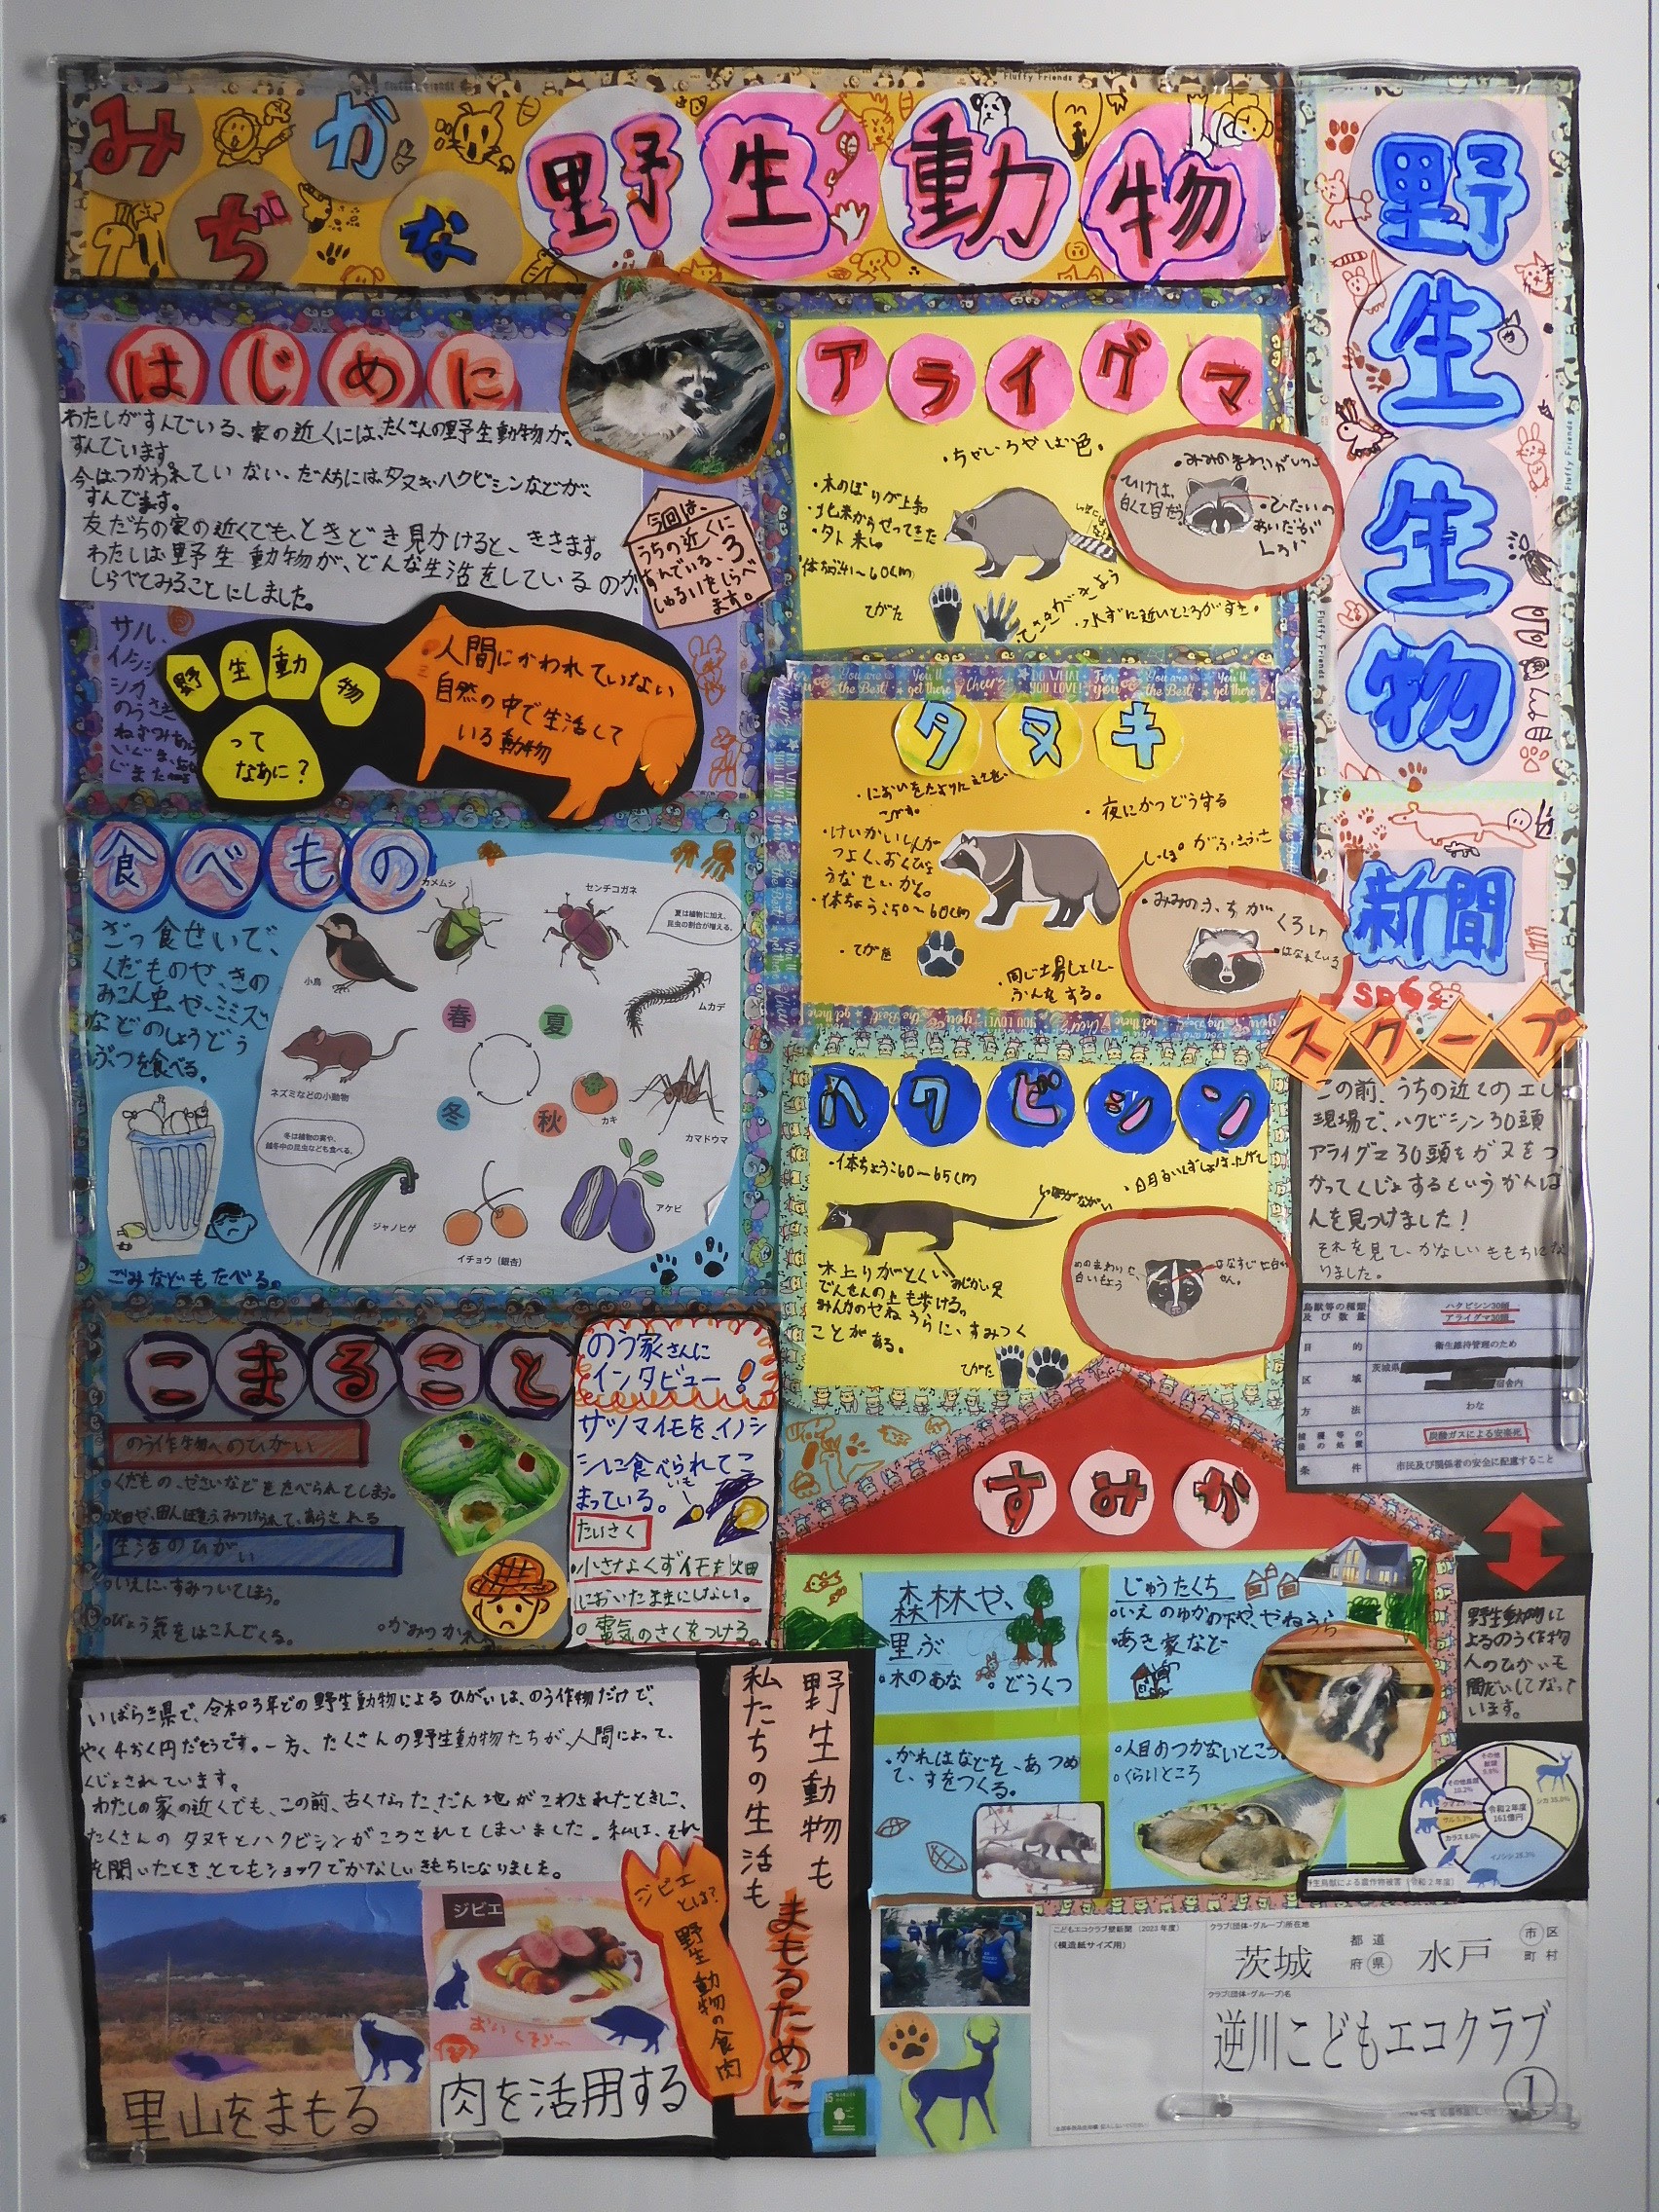 みぢかな野生動物
野生生物
新聞
はじめに
わたしがすんでいる、家の近くには、たくさんの野生動物が、
すんでいます。
今はつかわれていない、だんちにはタヌキ、ハクビシンなどが、
すんでます。
友だちの家の近くでも、ときどき見かけると、ききます。
わたしは野生動物が、どんな生活をしているのか
しらべてみることにしました。
今回は、
うちの近くに
すんでいる、3
しゅるいをしらべ
ます。
サル、
野生動物
って
なあに？
人間にかわれていない
自然の中で生活して
いる動物
アライグマ
・ちゃいろやはい色。
・木のぼりが上手
・北米からやってきた
・外来しゅ
体ちょう41～60cm
てがた
・水べに近いところがすき。
・みみのまわりがしろい
・ひげは、
白くて目だつ
・ひたいの
あいだが
しろい
タヌキ
・夜にかつどうする
・けいかいしんが
つよく、おくびょ
うなせいかく。
・体ちょう：50～60cm
・てがた
・同じ場しょに、
ふんをする。
・みみのふちが
くろい
ハクビシン
・体ちょう：60～65cm
木上りがとくい
みじかい足
でんせんの上も歩ける。
みんかのやねうらに、すみつく
ことがある。
てがた
食べもの
ざっ食せいで、
くだものや、きの
みこん虫や、ミミズ
などのしょうどう
ぶつを食べる。
ごみなどもたべる。
カメムシ
センチコガネ
夏は植物に加え、
昆虫の割合が増える。
小鳥
ムカデ
春
夏
ネズミなどの小動物
冬
秋
カキ
カマドウマ
冬は植物の実や、
越冬中の昆虫なども食べる。
ジャノヒゲ
イチョウ（銀杏）
アケビ
スクープ
この前、うちの近くの工じ
現場で、ハクビシン30頭
アライグマ30頭をガスをつ
かってくじょするというかんば
んを見つけました！
それを見て、かなしいきもちにな
りました。
鳥獣等の種類
及び数量
ハクビシン30頭
アライグマ30頭
目的
衛生維持管理のため
区域
茨城県
宿舎内
方法
わな
捕獲等の
後の処置
炭酸ガスによる安楽死
条件
市民及び関係者の安全に配慮すること
野生動物に
よるのう作物
人のひがいも
問だいになって
います。
こまること
のう作物へのひがい
・くだもの、やさいなどをたべられてしまう。
生活のひがい
・いえに、すみついてしまう。
・びょう気をはこんでくる。
のう家さんに
インタビュー！
サツマイモを、イノシ
シに食べられてこ
まっている。
いも
たいさく
・小さなくずイモを畑
においたままにしない。
・電気のさくをつける。
すみか
森林や、
里ぶ
・木のあな
・どうくつ
じゅうたくち
・いえのゆかの下や、やねうら
・あき家など
・かれはなどを、あつめ
て、すをつくる。
・人目のつかないところ
・くらいところ
令和2年度
161億円
シカ 35.0%
イノシシ 28.3%
野生鳥獣による農作物被害（令和2年度）
いばらき県で、令和03年どの野生動物によるひがいは、のう作物だけで、
やく4おく円だそうです。一方、たくさんの野生動物たちが、人間によって、
くじょされています。
わたしの家の近くでも、この前、古くなっただん地がこわされたときに、
たくさんのタヌキとハクビシンがころされてしまいました。私は、それ
を聞いたとき、とてもショックでかなしいきもちになりました。
野生動物も
私たちの生活も
まもるために
里山をまもる
ジビエ
肉を活用する
ジビエ
とは？
野生動物の食肉
こどもエコクラブ壁新聞（2023年度）
（模造紙サイズ用）
クラブ（団体・グループ）所在地
茨城
都道
府県
水戸
市区
町村
クラブ（団体・グループ）名
逆川こどもエコクラブ
①